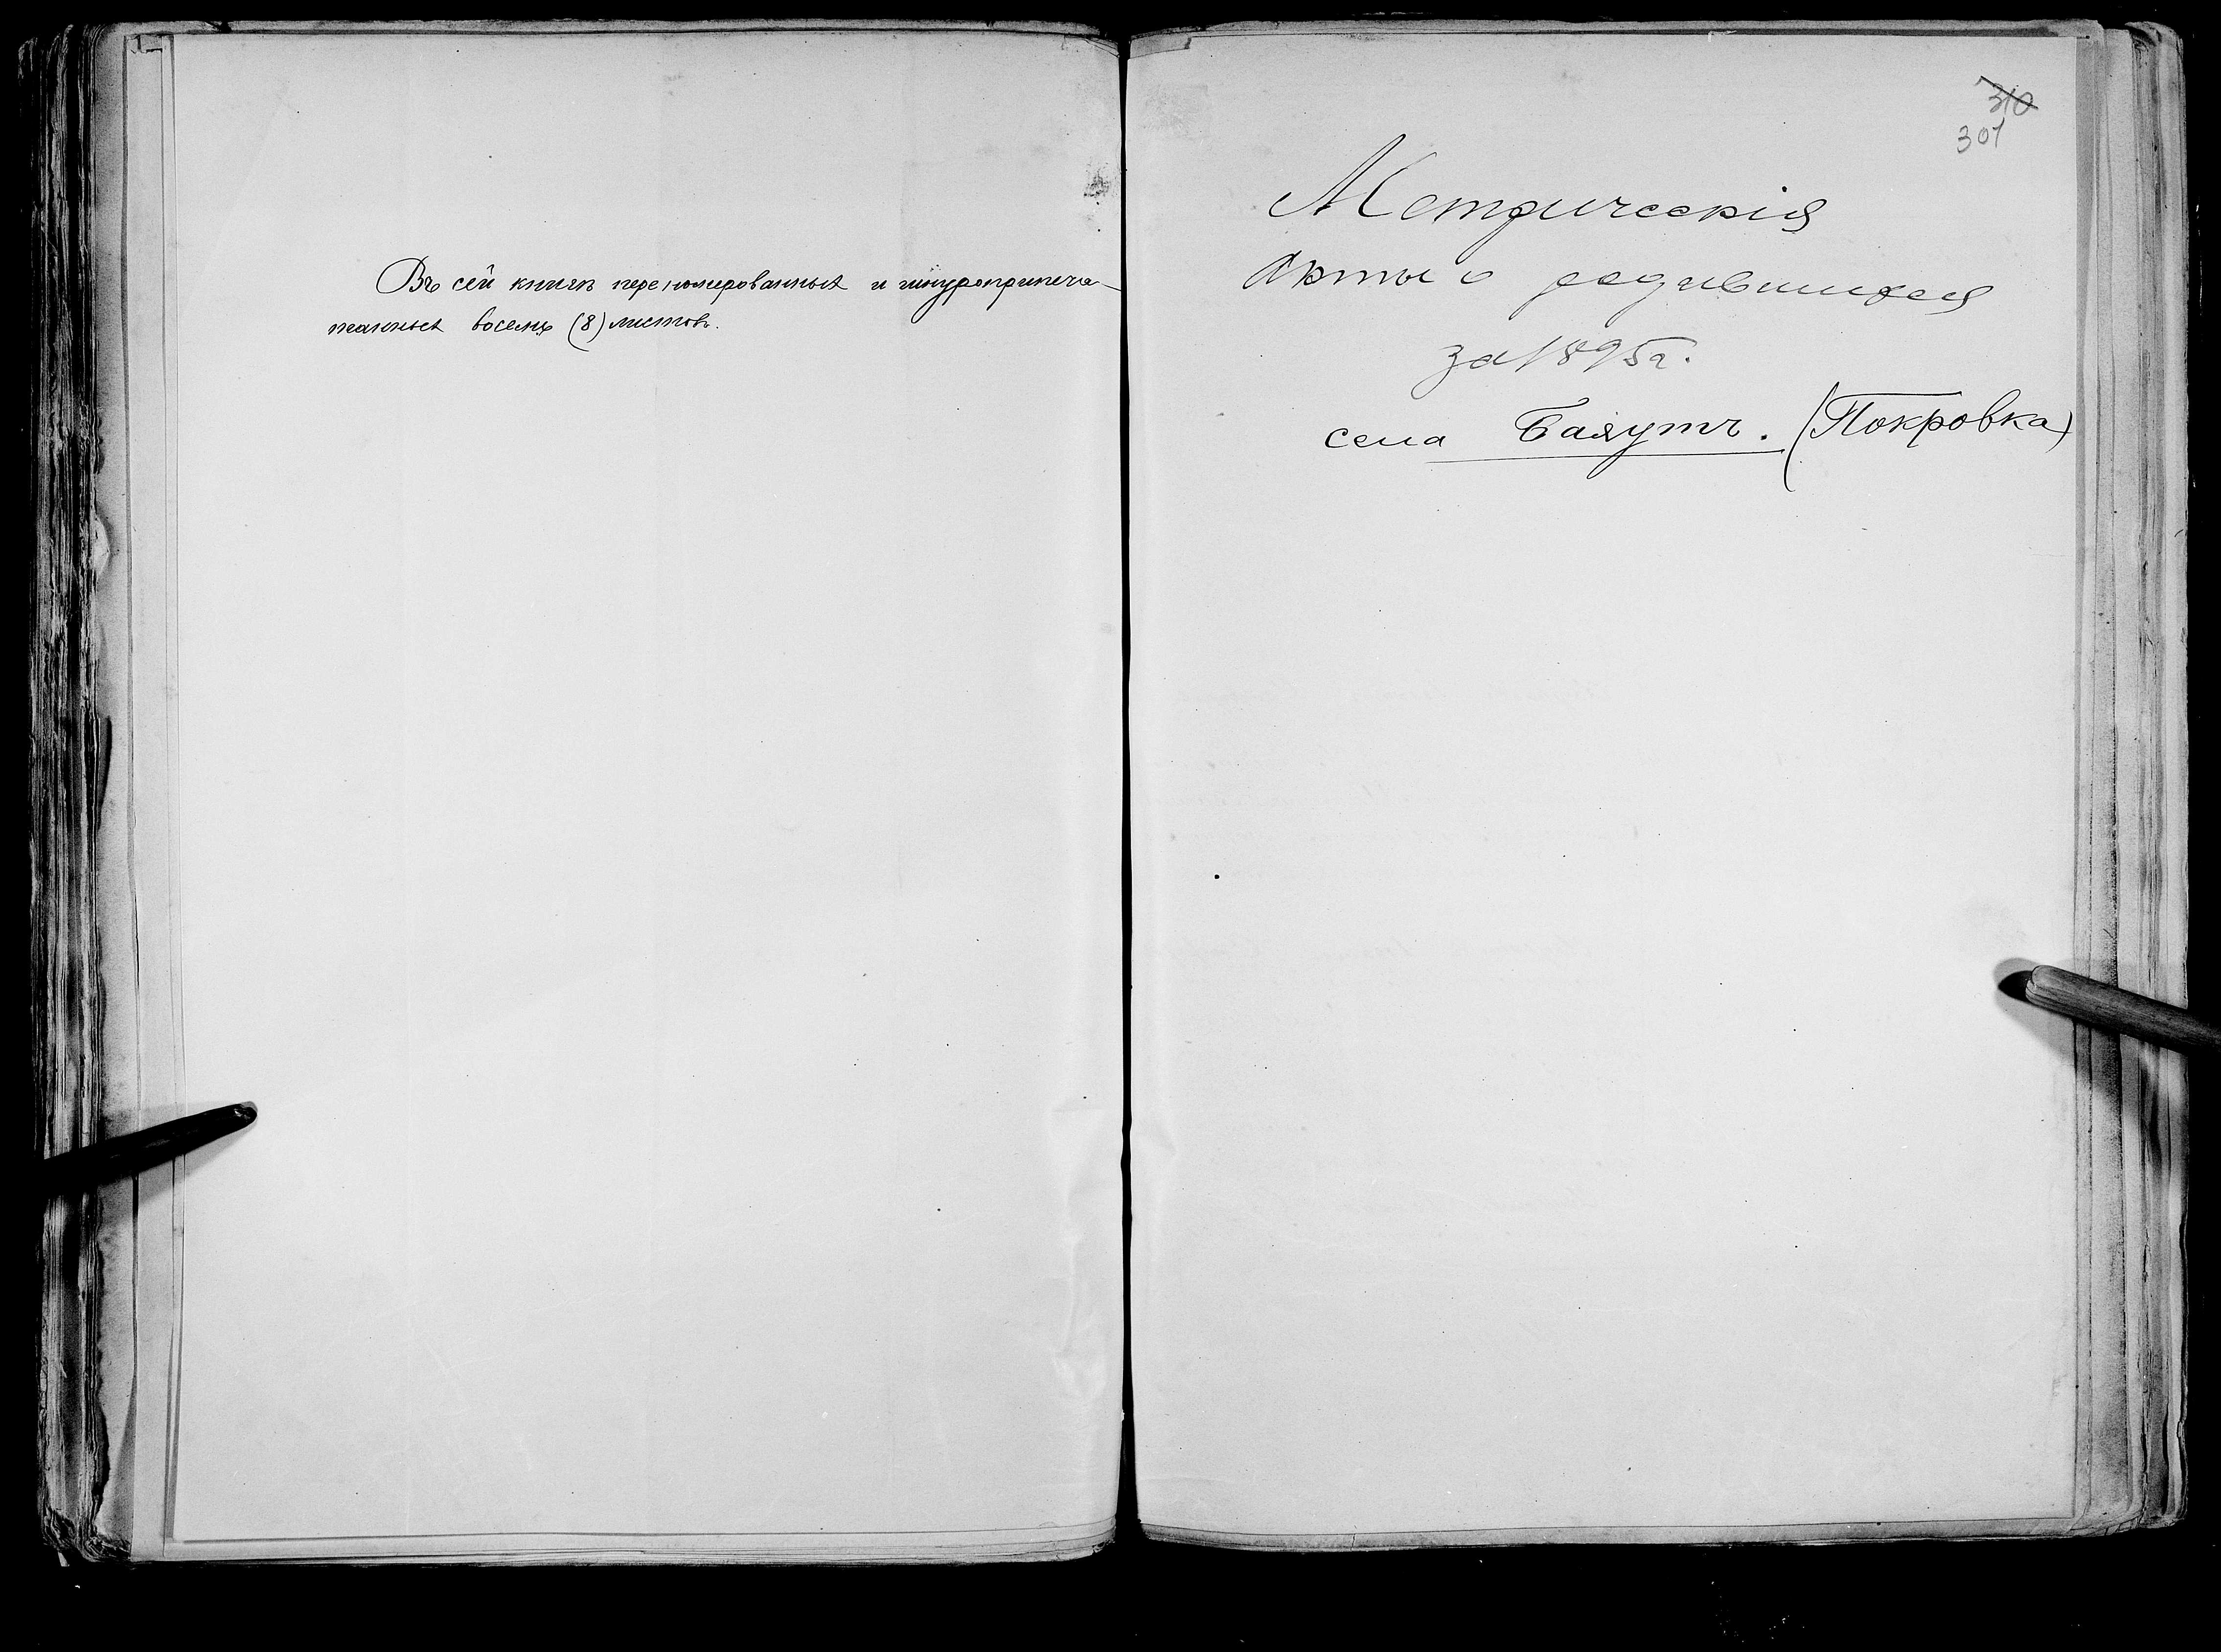 Въ сей книгѣ перенумерованныхъ и шнуроприпеча-
танныхъ восемь (8) листовъ.
310
301
Метрическія
Акты о родившихся
за 1895 г.
села Баяутъ. (Покровка)